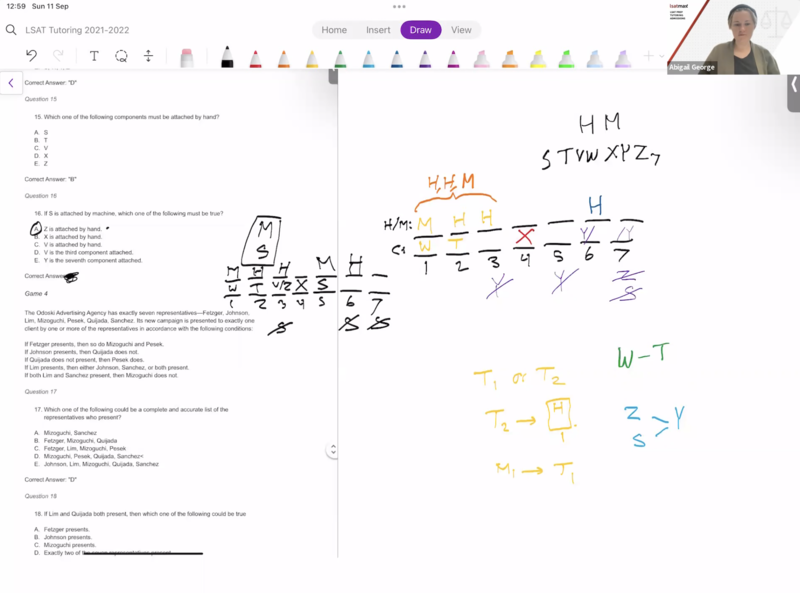 12:59 Sun 11 Sep
LSAT Tutoring 2021-2022
Home Insert Draw View
lsatmad
Abigail George
Correct Answer: "D"
Question 15
15. Which one of the following components must be attached by hand?
A. S
B. T
C. V
D. X
E. Z
Correct Answer: "B"
Question 16
16. If S is attached by machine, which one of the following must be true?
A. Z is attached by hand.
B. X is attached by hand.
C. V is attached by hand.
D. V is the third component attached.
E. Y is the seventh component attached.
Correct Answer
M
S
M H H M H
W T V/Z X S
1 2 3 4 5 6 7
S S S
Game 4
The Odoski Advertising Agency has exactly seven representatives—Fetzger, Johnson,
Lim, Mizoguchi, Pesek, Quijada, Sanchez. Its new campaign is presented to exactly one
client by one or more of the representatives in accordance with the following conditions:
If Fetzger presents, then so do Mizoguchi and Pesek.
If Johnson presents, then Quijada does not.
If Quijada does not present, then Pesek does.
If Lim presents, then either Johnson, Sanchez, or both present.
If both Lim and Sanchez present, then Mizoguchi does not.
Question 17
17. Which one of the following could be a complete and accurate list of the
representatives who present?
A. Mizoguchi, Sanchez
B. Fetzger, Mizoguchi, Quijada
C. Fetzger, Lim, Mizoguchi, Pesek
D. Mizoguchi, Pesek, Quijada, Sanchez<
E. Johnson, Lim, Mizoguchi, Quijada, Sanchez
Correct Answer: "D"
Question 18
18. If Lim and Quijada both present, then which one of the following could be true
A. Fetzger presents.
B. Johnson presents.
C. Mizoguchi presents.
D. Exactly two of the seven representatives present.
H M
S T V W X Y Z 7
H, H, M
H/M: M H H H
W T X Y Y
1 2 3 4 5 6 7
Y Y Z
S
W - T
T1 or T2
T2 → H
1
M1 → T1
Z
S > Y